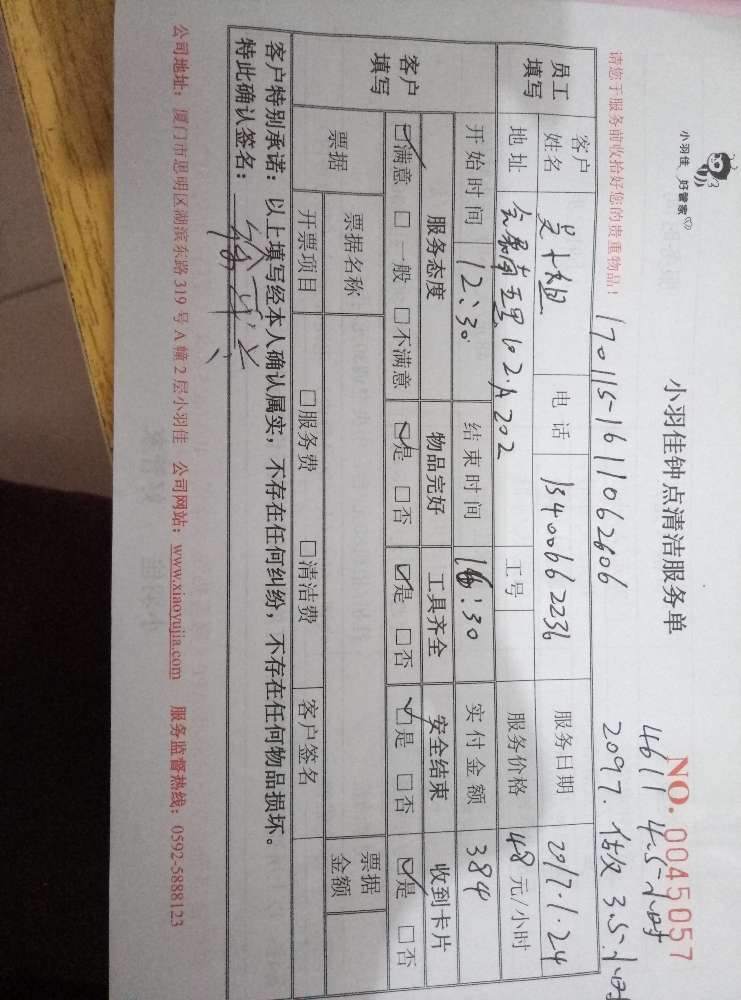 小羽佳 好管家
小羽佳钟点清洁服务单
NO. 0045057
4611 4.5小时
请您于服务前收拾好您的贵重物品！
170115-1611062606
2097. 3.5小时
员工填写
客户姓名
吴大姐
电话
13400662236
服务日期
2017.1.24
地址
102.A202
工号
服务价格
48 元/小时
开始时间
12:30
结束时间
16:30
实付金额
384
客户填写
服务态度
物品完好
工具齐全
安全结束
收到卡片
☑满意 □一般 □不满意
☑是 □否
☑是 □否
☑是 □否
☑是 □否
票据
票据名称
票据金额
开票项目
□服务费 □清洁费
客户签名
客户特别承诺：以上填写经本人确认属实，不存在任何纠纷，不存在任何物品损坏。
特此确认签名：
公司地址：厦门市思明区湖滨东路 319 号 A 幢 2 层小羽佳 公司网站：www.xiaoyujia.com 服务监督热线：0592-5888123